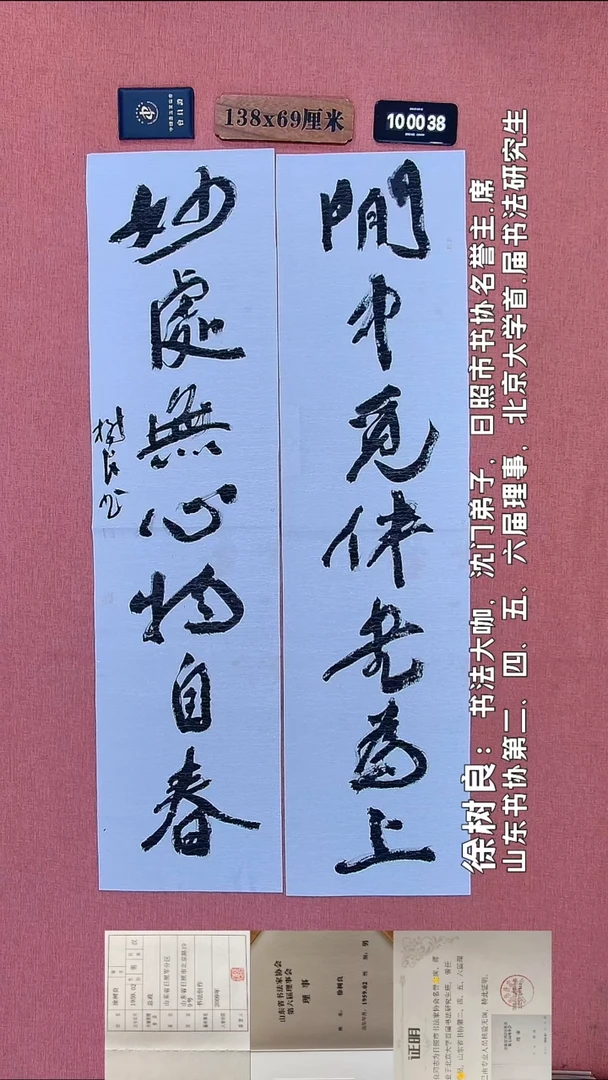 138x69厘米
10 00 38
会员证
閒中覓伴書為上
妙處無心物自春
樹良书
徐树良：书法大咖，沈门弟子，日照市书协名誉主.席
山东书协第二、四、五、六届理事，北京大学首.届书法研究生
山东省书法家协会
第六届理事会
理事
徐树良
男
证明